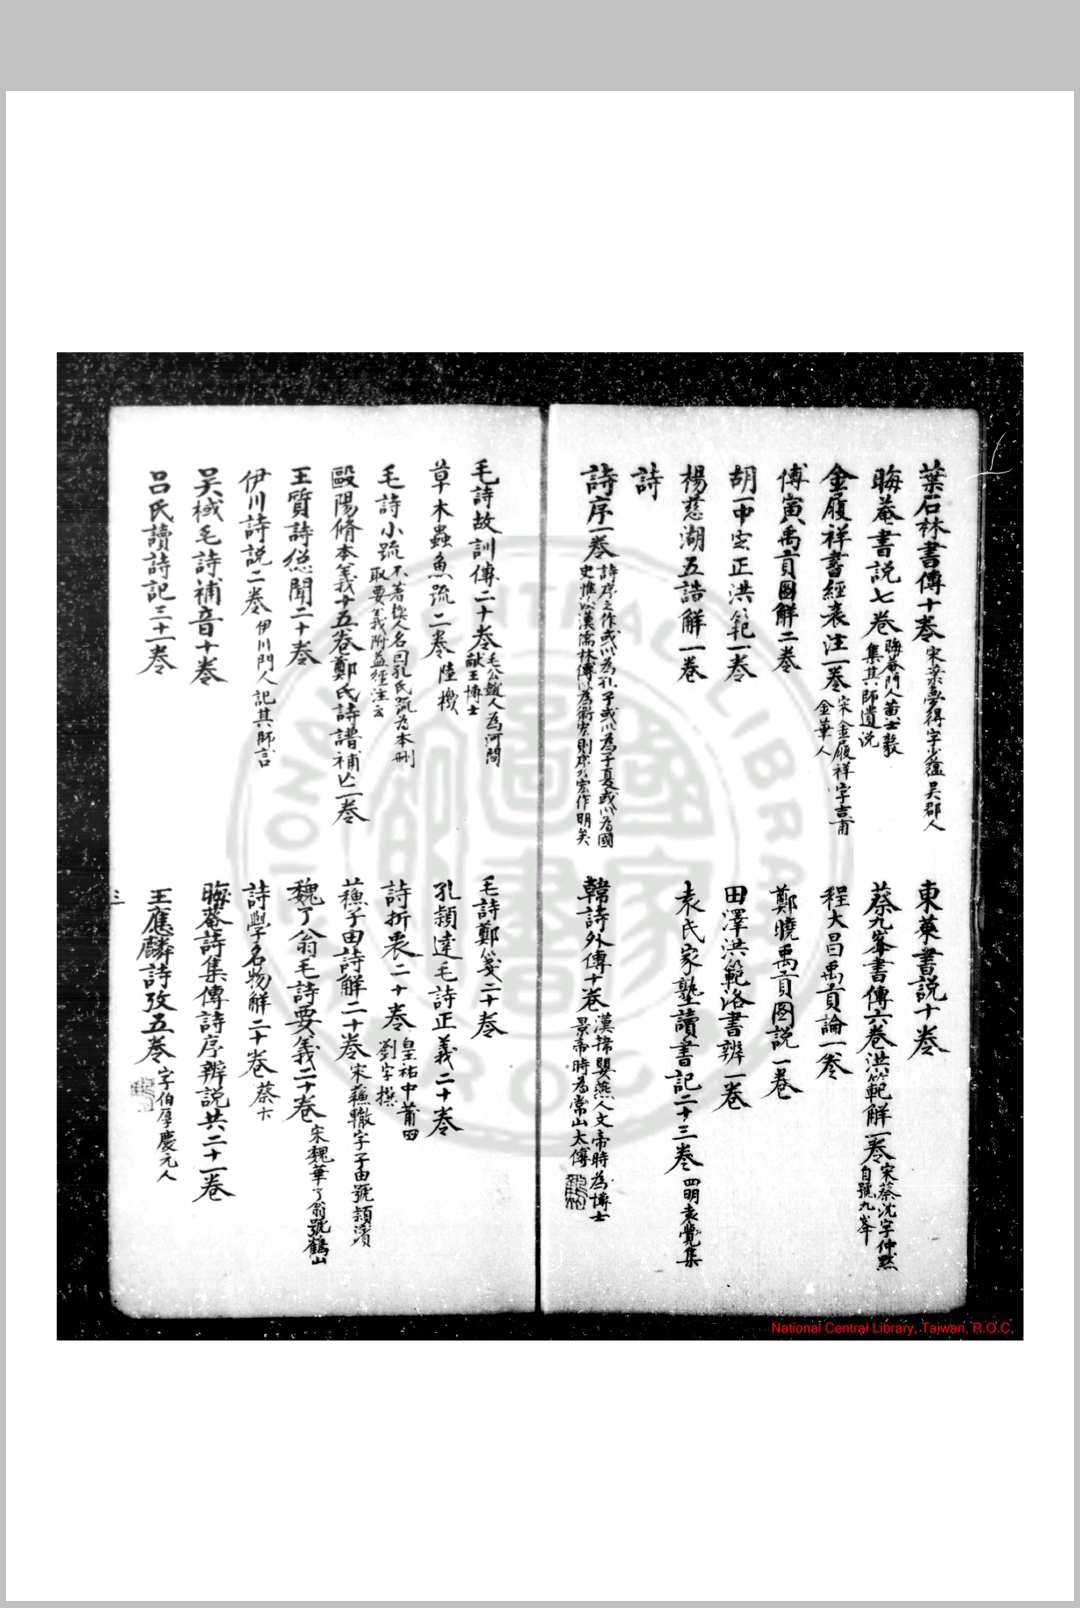 葉石林書傳十卷 宋葉夢得字少蘊吳郡人
東萊書説十卷
晦菴書説七卷 晦菴門人黄士毅集其師遺説
蔡九峯書傳六卷洪範解一卷 宋蔡沈字仲默自號九峯
金履祥書經表注一卷 宋金履祥字吉甫金華人
程大昌禹貢論一卷
傅寅禹貢圖解二卷
鄭曉禹貢图説一卷
胡一中定正洪範一卷
田澤洪範洛書辨一卷
楊慈湖五誥解一卷
袁氏家塾讀書記二十三卷 四明袁覺集
詩
詩序一卷 詩序之作或以為孔子或以為子夏或以為國史惟以漢儒林傳以為衛宏則序乃宏作明矣
韓詩外傳十卷 漢韓嬰燕人文帝時為博士景帝時為常山太傅
毛詩故訓傳二十卷 毛公趙人為河間獻王博士
毛詩鄭箋二十卷
草木蟲魚疏二卷 陸機
孔穎達毛詩正義二十卷
毛詩小疏 不著撰人名曰孔氏疏為本刪取要義附益經注云
詩折衷二十卷 皇祐中莆田劉宇撰
毆陽脩本義十五卷鄭氏詩譜補亡一卷
蘓子由詩解二十卷 宋蘓轍字子由號潁濱
王質詩總聞二十卷
魏了翁毛詩要義二十卷 宋魏華了翁號鶴山
伊川詩説二卷 伊川門人記其師言
詩學名物解二十卷 蔡卞
吳棫毛詩補音十卷
晦菴詩集傳詩序辨説共二十一卷
呂氏讀詩記三十一卷
王應麟詩攷五卷 字伯厚慶元人
三
National Central Library, Taiwan, R.O.C.